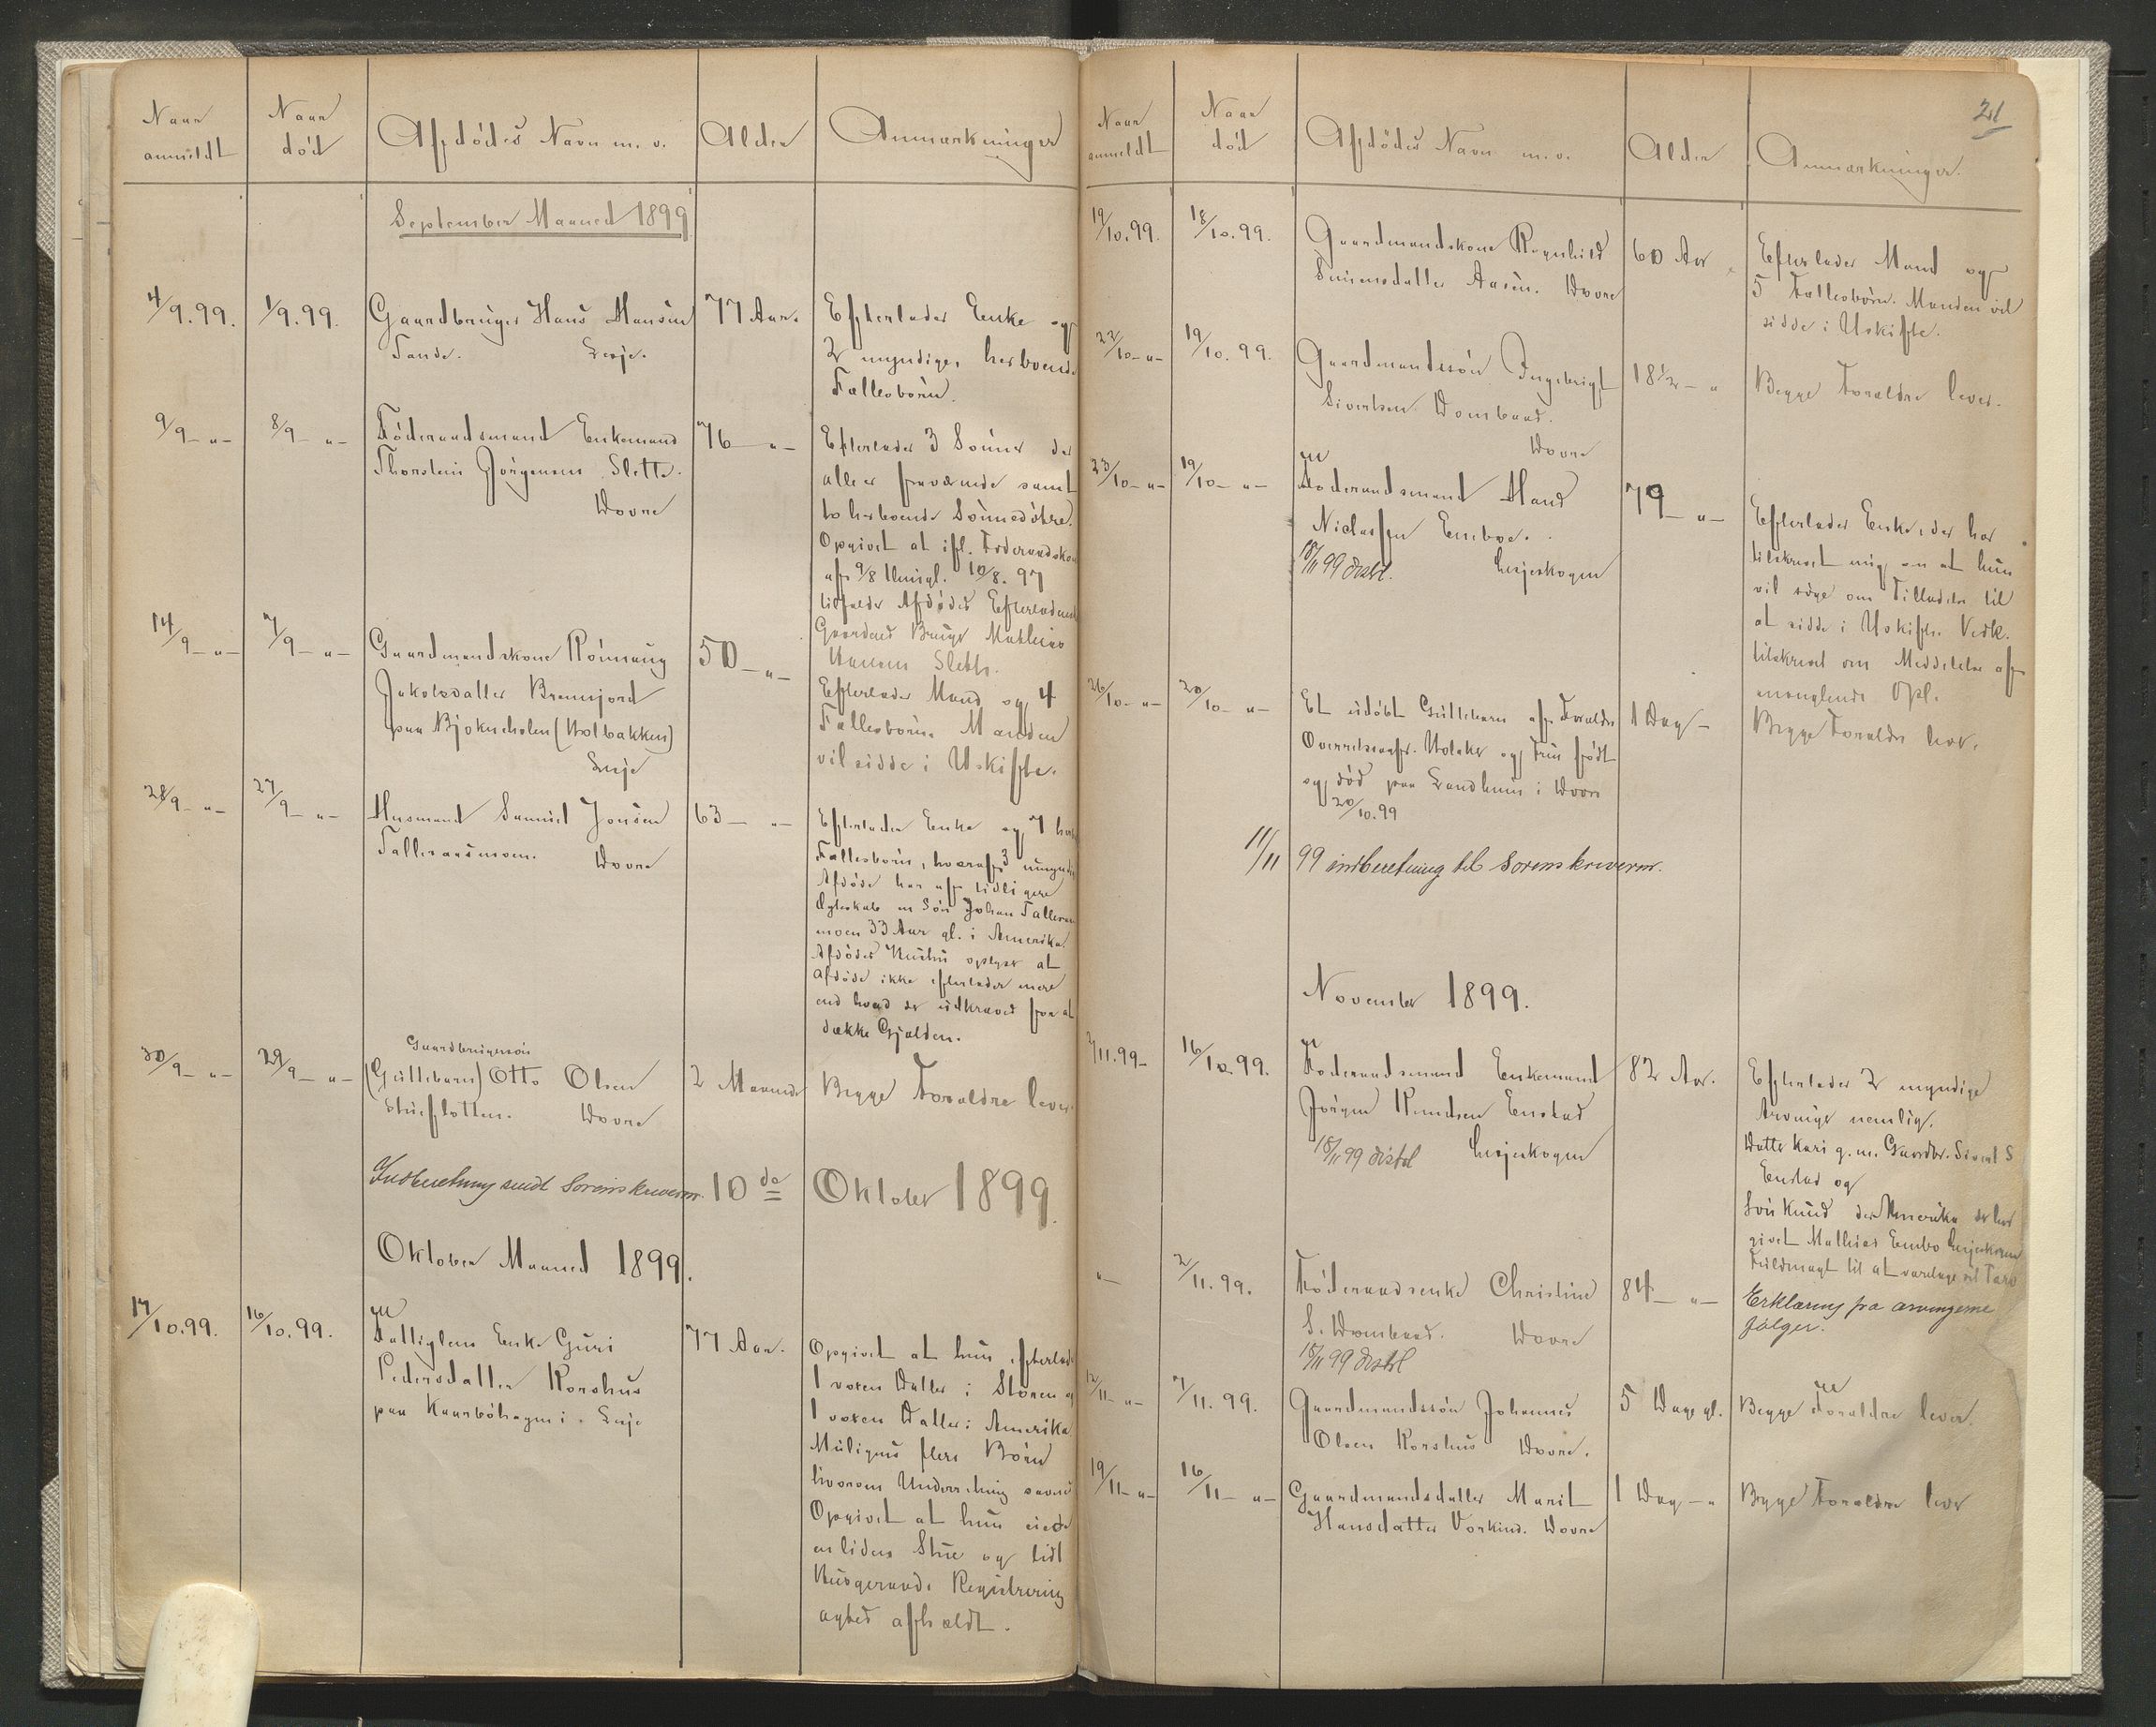 Naar anmeldt
Naar død
Afdødes Navn m. v.
Alder
Anmærkninger
September Maaned 1899
4/9.99.
1/9.99.
Gaardbruger Hans Hansen
Sande. Lesje.
77 Aar.
Efterlader Enke og
2 myndige, herboende
Fællesbörn.
9/9 - " -
8/9 - " -
Föderaadsmand Enkemand
Thorstein Jörgensen Slette.
Dovre
76 - " -
Efterlader 3 Sönner der
alle er fraværende samt
to herboende Sönnedötre.
Opgivet at ifl. Föderaadskon
af 9/8 thingl. 10/8. 97
tilfalder Afdödes Efterladensk
Gaardens Bruger Mathias
Hansen Slette.
14/9 - " -
7/9 - " -
Gaardmandskone Rönnaug
Jakobsdatter Brennjord
paa Bjokneholen (Holbakken)
Lesje
50 - " -
Efterlader Mand og 4
Fællesbörn. Manden
vil sidde i Uskifte.
28/9 - " -
27/9 - " -
Husmand Samuel Jonsen
Talleraasmoen. Dovre
63 - " -
Efterlader Enke og 7
Fællesbörn, hvoraf 3 umyndi
Afdöde har af tidligere
Ægteskab en Sön Johan Talleraas
moen 33 Aar gl. i Amerika.
Afdödes Hustru oplyser at
Afdöde ikke efterlader mere
end hvad der udkræves for at
dække Gjælden.
30/9 - " -
29/9 - " -
Gaardbrugersön
(Güttebarn) Otto Olsen
Stueflotten. Dovre
2 Maaneder
Begge Forældre lever.
Indberetning sendt Sorenskriveren. 10 de Oktober 1899.
Oktober Maaned 1899.
17/10.99.
16/10.99.
Fattiglem Enke Guri
Pedersdatter Korshus
paa Kaarböhagen i Lesje
77 Aar.
Opgivet at hun efterlade
1 voxen Datter i Støren og
1 voxen Datter i Amerika
Muligens flere Börn
hvorom Underretning savnes
Opgivet at hun eiede
en liden Stue og lidt
Husgeraad. Registrering
agtes afholdt.
Naar anmeldt
Naar död
Afdödes Navn m.v.
Alder
Anmærkninger.
21
19/10.99.
18/10.99.
Gaardmandskone Ragnhild
Simensdatter Aasen. Dovre
60 Aar
Efterlader Mand og
5 Fællesbörn. Manden vil
sidde i Uskifte.
22/10 - " -
19/10.99.
Gaardmandssön Ingebrigt
Sivertsen Dombaas.
Dovre
18 1/2 - "
Begge Forældre lever.
23/10 - " -
19/10 - " -
Föderaadsmand Hans
Niclassen Eneboe.
18/11 99 Lesjeskogen
79 - " -
Efterlader Enke, der har
tilskrevet mig om at hun
vil söge om Tilladelse til
at sidde i Uskifte. Vedk.
tilskrevet om Meddelelse af
manglende Opl.
26/10 - " -
20/10 - " -
Et udöbt Güttebarn af Forældre
Overretssagf. Holaker og Frue födt
og död paa Landheim i Dovre
20/10.99
1 Dag -
Begge Forældre lever.
11/11 99 indberetning til Sorenskriveren.
November 1899.
2/11.99 -
16/10.99.
Föderaadsmand Enkemand
Jörgen Knudsen Enstad
18/11 99 Lesjeskogen
82 Aar.
Efterlader 2 myndige
Arvinger nemlig.
Datter Kari g.m. Gaardbr. Sivert S
Enstad og
Sön Knud der Amerika der har
givet Mathias Enebo Lesjeskogen
Fuldmagt til at varetage sit Tarv
Erklæring fra arvingerne
følger.
" -
2/11.99.
Föderaadsenke Christine
S. Dombaas. Dovre
18/11 99
84 - " -
12/11 - " -
7/11.99.
Gaardmandssön Johannes
Olsen Korshus Dovre.
5 Dage gl.
Begge Forældre lever.
19/11 - " -
16/11 - " -
Gaardmandsdatter Marit
Hansdatter Vorkind. Dovre
1 Dag - "
Begge Forældre lever